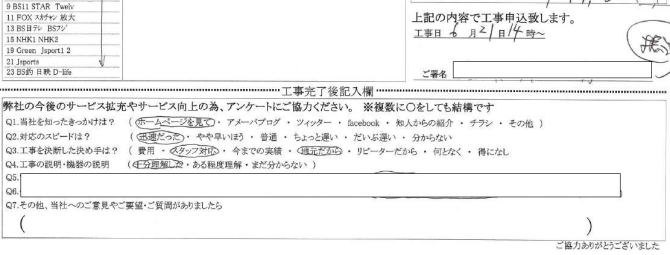 9 BS11 STAR Twelv
11 FOX スカチャン 放大
13 BS日テレ BSフジ
15 NHK1 NHK2
19 Green Jsport1 2
21 Jsports
23 BS釣 日映 D-life
上記の内容で工事申込致します。
工事日 6月21日14時~
ご署名
工事完了後記入欄
弊社の今後のサービス拡充やサービス向上の為、アンケートにご協力ください。 ※複数に○をしても結構です
Q1.当社を知ったきっかけは? ( ホームページを見て ・ アメーバブログ ・ ツィッター ・ facebook ・ 知人からの紹介 ・ チラシ ・ その他 )
Q2.対応のスピードは? ( 迅速だった ・ やや早いほう ・ 普通 ・ ちょっと遅い ・ だいぶ遅い ・ 分からない
Q3.工事を決断した決め手は? ( 費用 ・ スタッフ対応 ・ 今までの実績 ・ 地元だから ・ リピーターだから ・ 何となく ・ 得になし
Q4.工事の説明・機器の説明 ( 十分理解した ・ ある程度理解 ・ まだ分からない )
Q5.
Q6.
Q7.その他、当社へのご意見やご要望・ご質問がありましたら
( )
ご協力ありがとうございました